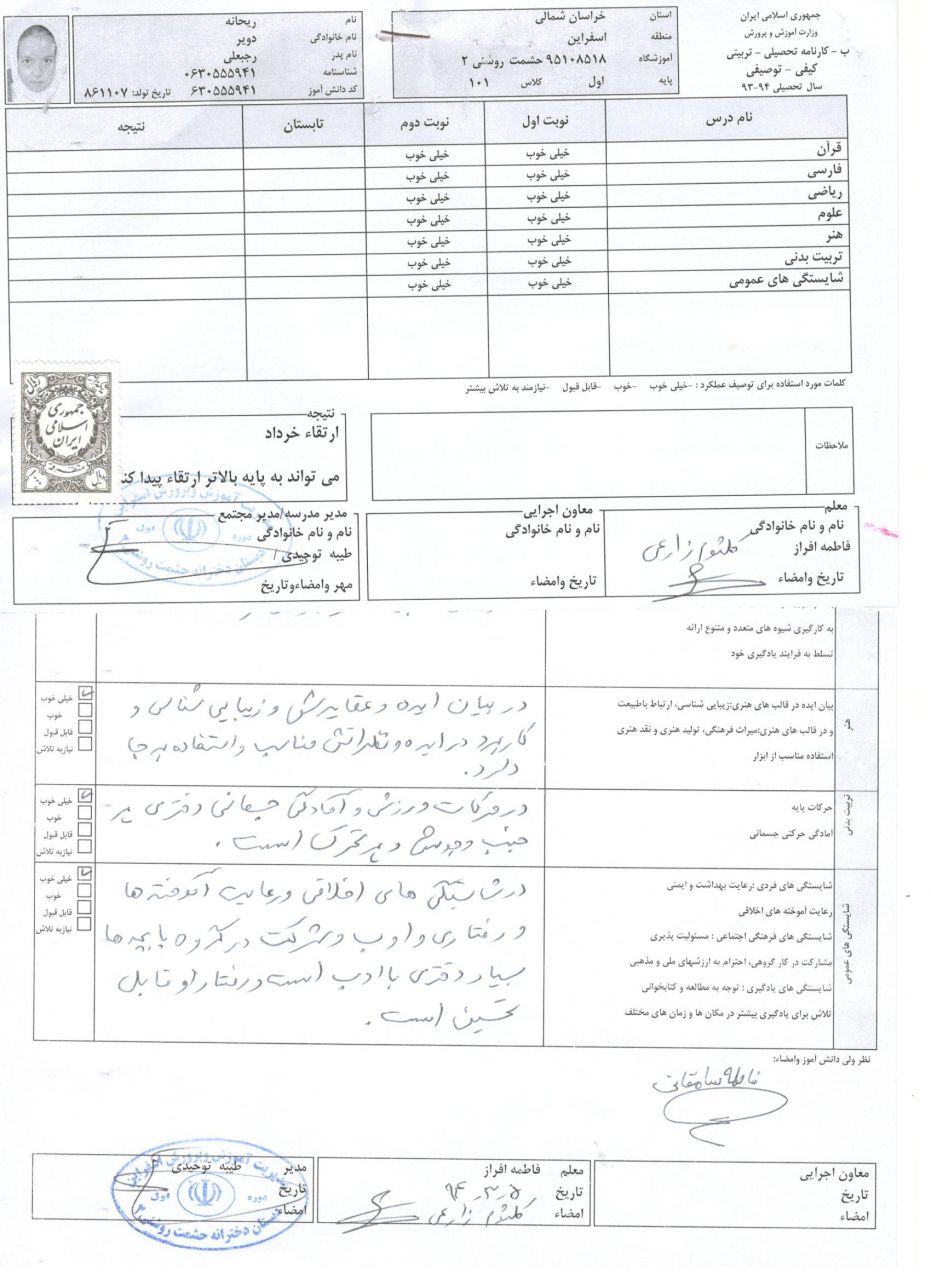 جمهوری اسلامی ایران
وزارت آموزش و پرورش
ب - کارنامه تحصیلی - تربیتی
کیفی - توصیفی
سال تحصیلی ۹۴-۹۳
استان خراسان شمالی
منطقه اسفراین
آموزشگاه ۹۵۱۰۸۵۱۸ حشمت روشنی ۲
پایه اول کلاس ۱۰۱
نام ریحانه
نام خانوادگی دویر
نام پدر رجبعلی
شناسنامه ۰۶۳۰۵۵۵۹۴۱
کد دانش آموز ۶۳۰۵۵۵۹۴۱ تاریخ تولد: ۸۶۱۱۰۷
نام درس نوبت اول نوبت دوم تابستان نتیجه
قرآن خیلی خوب خیلی خوب
فارسی خیلی خوب خیلی خوب
ریاضی خیلی خوب خیلی خوب
علوم خیلی خوب خیلی خوب
هنر خیلی خوب خیلی خوب
تربیت بدنی خیلی خوب خیلی خوب
شایستگی های عمومی خیلی خوب خیلی خوب
کلمات مورد استفاده برای توصیف عملکرد : -خیلی خوب -خوب -قابل قبول -نیازمند به تلاش بیشتر
ملاحظات
نتیجه
ارتقاء خرداد
می تواند به پایه بالاتر ارتقاء پیدا کند
جمهوری
اسلامی
ایران
متفرقه
ریال
معلم
نام و نام خانوادگی
فاطمه افراز
کلثوم زارعی
تاریخ وامضاء
معاون اجرایی
نام و نام خانوادگی
تاریخ وامضاء
مدیر مدرسه/مدیر مجتمع
نام و نام خانوادگی
طیبه توحیدی
مهر وامضاءوتاریخ
مدیریت آموزش وپرورش اسفراین
دوره اول
دبستان دخترانه حشمت روشنی
به کارگیری شیوه های متعدد و متنوع ارائه
تسلط به فرایند یادگیری خود
هنر
بیان ایده در قالب های هنری:زیبایی شناسی، ارتباط باطبیعت
و در قالب های هنری:میراث فرهنگی، تولید هنری و نقد هنری
استفاده مناسب از ابزار
در بیان ایده و عقایدش و زیبایی شناسی و
کاربرد در ایده و تفکراتش مناسب واستفاده به جا
دارد.
خیلی خوب
خوب
قابل قبول
نیازبه تلاش
تربیت بدنی
حرکات پایه
آمادگی حرکتی جسمانی
در حرکات ورزشی و آمادگی جسمانی دختری پر
جنب وجوش و پرتحرک است .
خیلی خوب
خوب
قابل قبول
نیازبه تلاش
شایستگی های عمومی
شایستگی های فردی :رعایت بهداشت و ایمنی
رعایت آموخته های اخلاقی
شایستگی های فرهنگی اجتماعی : مسئولیت پذیری
مشارکت در کار گروهی، احترام به ارزشهای ملی و مذهبی
شایستگی های یادگیری : توجه به مطالعه و کتابخوانی
تلاش برای یادگیری بیشتر در مکان ها و زمان های مختلف
درشایستگی های اخلاقی ورعایت آموخته ها
و رفتاری و ادب و شرکت در گروه با بچه ها
بسیار دختری با ادب است و رفتار او قابل
تحسین است .
خیلی خوب
خوب
قابل قبول
نیازبه تلاش
نظر ولی دانش آموز وامضاء:
معاون اجرایی
تاریخ
امضاء
معلم فاطمه افراز
تاریخ ۹۴-۳-۵
امضاء کلثوم زارعی
مدیر طیبه توحیدی
تاریخ
امضاء
مدیریت آموزش وپرورش اسفراین
دوره اول
دبستان دخترانه حشمت روشنی